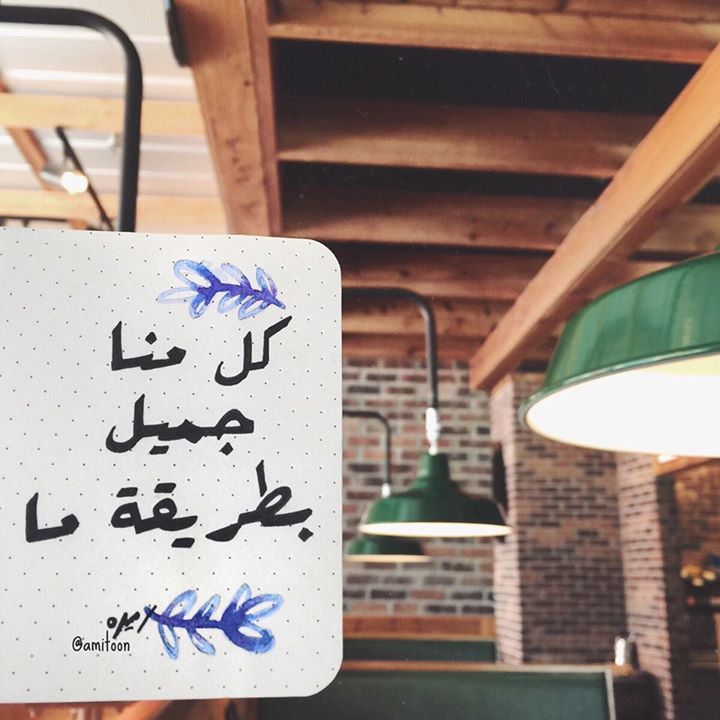 كل منا
جميل
بطريقة ما
اميره
@amitoon